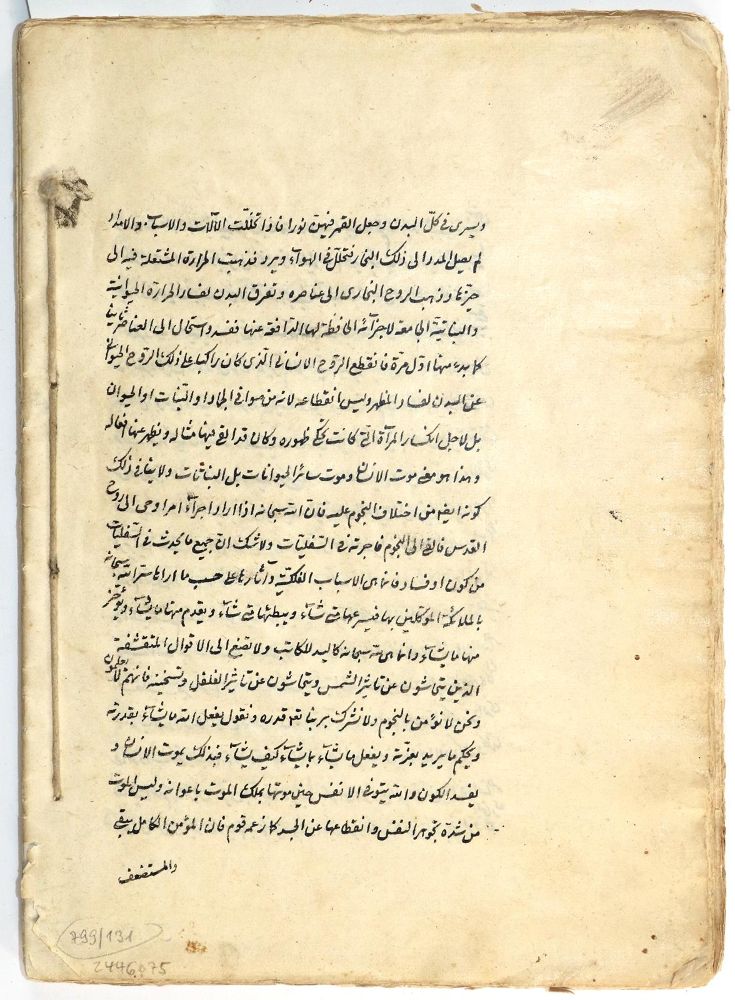 ويسرى في كلّ البدن وجعل القمر فيهنّ نورا فاذا تخللت الآلات والاسباب والامداد
لم يصل المدد الى ذلك البخار فتحلل في الهوآء وبرد فذهبت الحرارة المشتعلة فيه الى
حيّزها وذهب الروح البخارى الى عناصره وتفرق البدن لفساد الحرارة الحيوانية
والنباتية الجامعة لاجزآئه الحافظة لها الدافعة عنها ففسد واستحال الى العناصر
كما بدء منها اوّل مرة فانقطع الروح الانسانى الّذى كان راكبا على ذلك الروح الحيوانى
عن البدن لفساد المظهر وليس انقطاعه لانه من صوافى الجماد او النبات او الحيوان
بل لاجل انكسار المرآة الّتى كانت تحكى ظهوره وكان قد القى فيها مثاله ويظهر عنها افعاله
وهذا هو معنى موت الانسان وموت سائر الحيوانات بل النباتات ولا ينافى ذلك
كونه ايضا من اختلاف النجوم عليه فان الله سبحانه اذا اراد اجرآء امر اوحى الى روح
القدس فالقى الى النجوم فاجرته فى السفليات ولا شك انّ جميع ما يحدث فى السفليات
من كون او فساد فانما هى الاسباب الفلكيّة وآثارها على حسب ما اراد الله سبحانه
بالملائكة الموكلين بها فيسرعها متى شآء ويبطئها متى شآء ويقدم منها ما يشآء ويؤخر
منها ما يشآء وانما هى لله سبحانه كاليد للكاتب ولا تصغ الى الاقوال المتقشفة
الذين يتحاشون عن تاثير الشمس ويتحاشون عن تاثير الفلفل وتسخينه فانهم جاهلون
ونحن لا نؤمن بالنجوم ولا نشرك بربنا بعد قدره ونقول يفعل الله ما يشآء بقدرته
ويحكم ما يريد بعزّته ويفعل ما يشآء بما يشآء كيف يشآء فبذلك يموت الانسان و
يفسد الكون والله يتوفى الانفس حين موتها بملك الموت باعوانه وليس الموت
من شدة تجوهر النفس وانقطاعها عن الجسد كما زعمه قوم فان المؤمن الكامل يبقى
والمستضعف
799/131
2446075